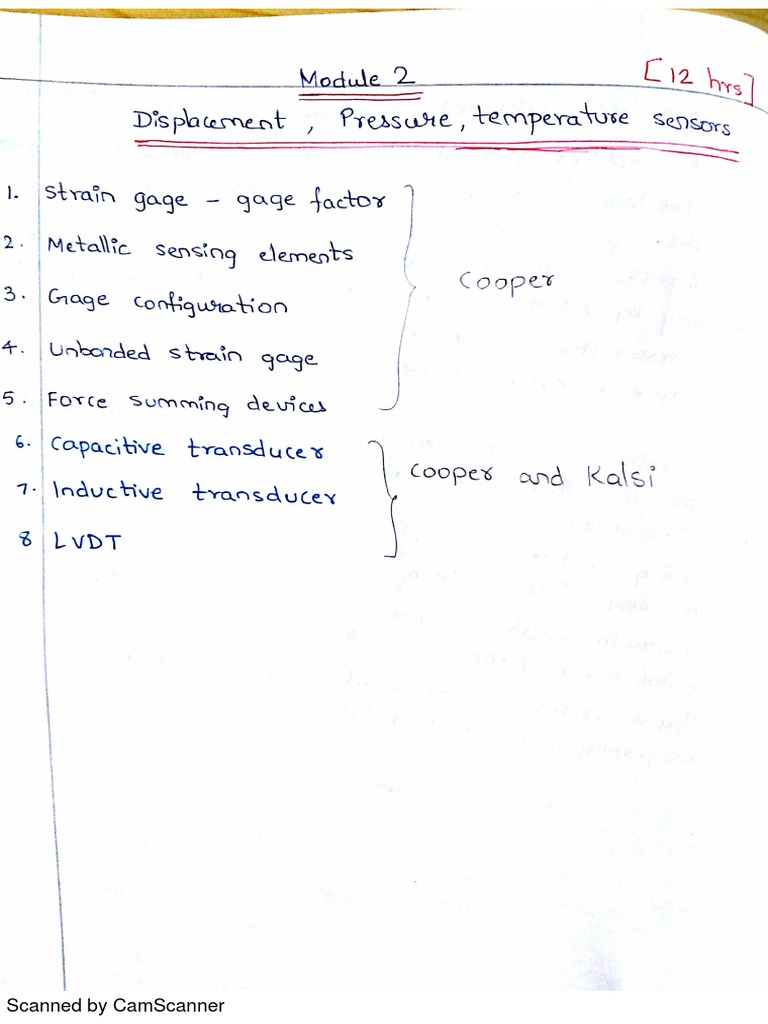 Module 2 [12 hrs]
Displacement, Pressure, temperature sensors
1. Strain gage - gage factor
2. Metallic sensing elements
3. Gage configuration
4. Unbonded strain gage
5. Force summing devices
Cooper
6. Capacitive transducer
7. Inductive transducer
8 LVDT
Cooper and Kalsi
Scanned by CamScanner